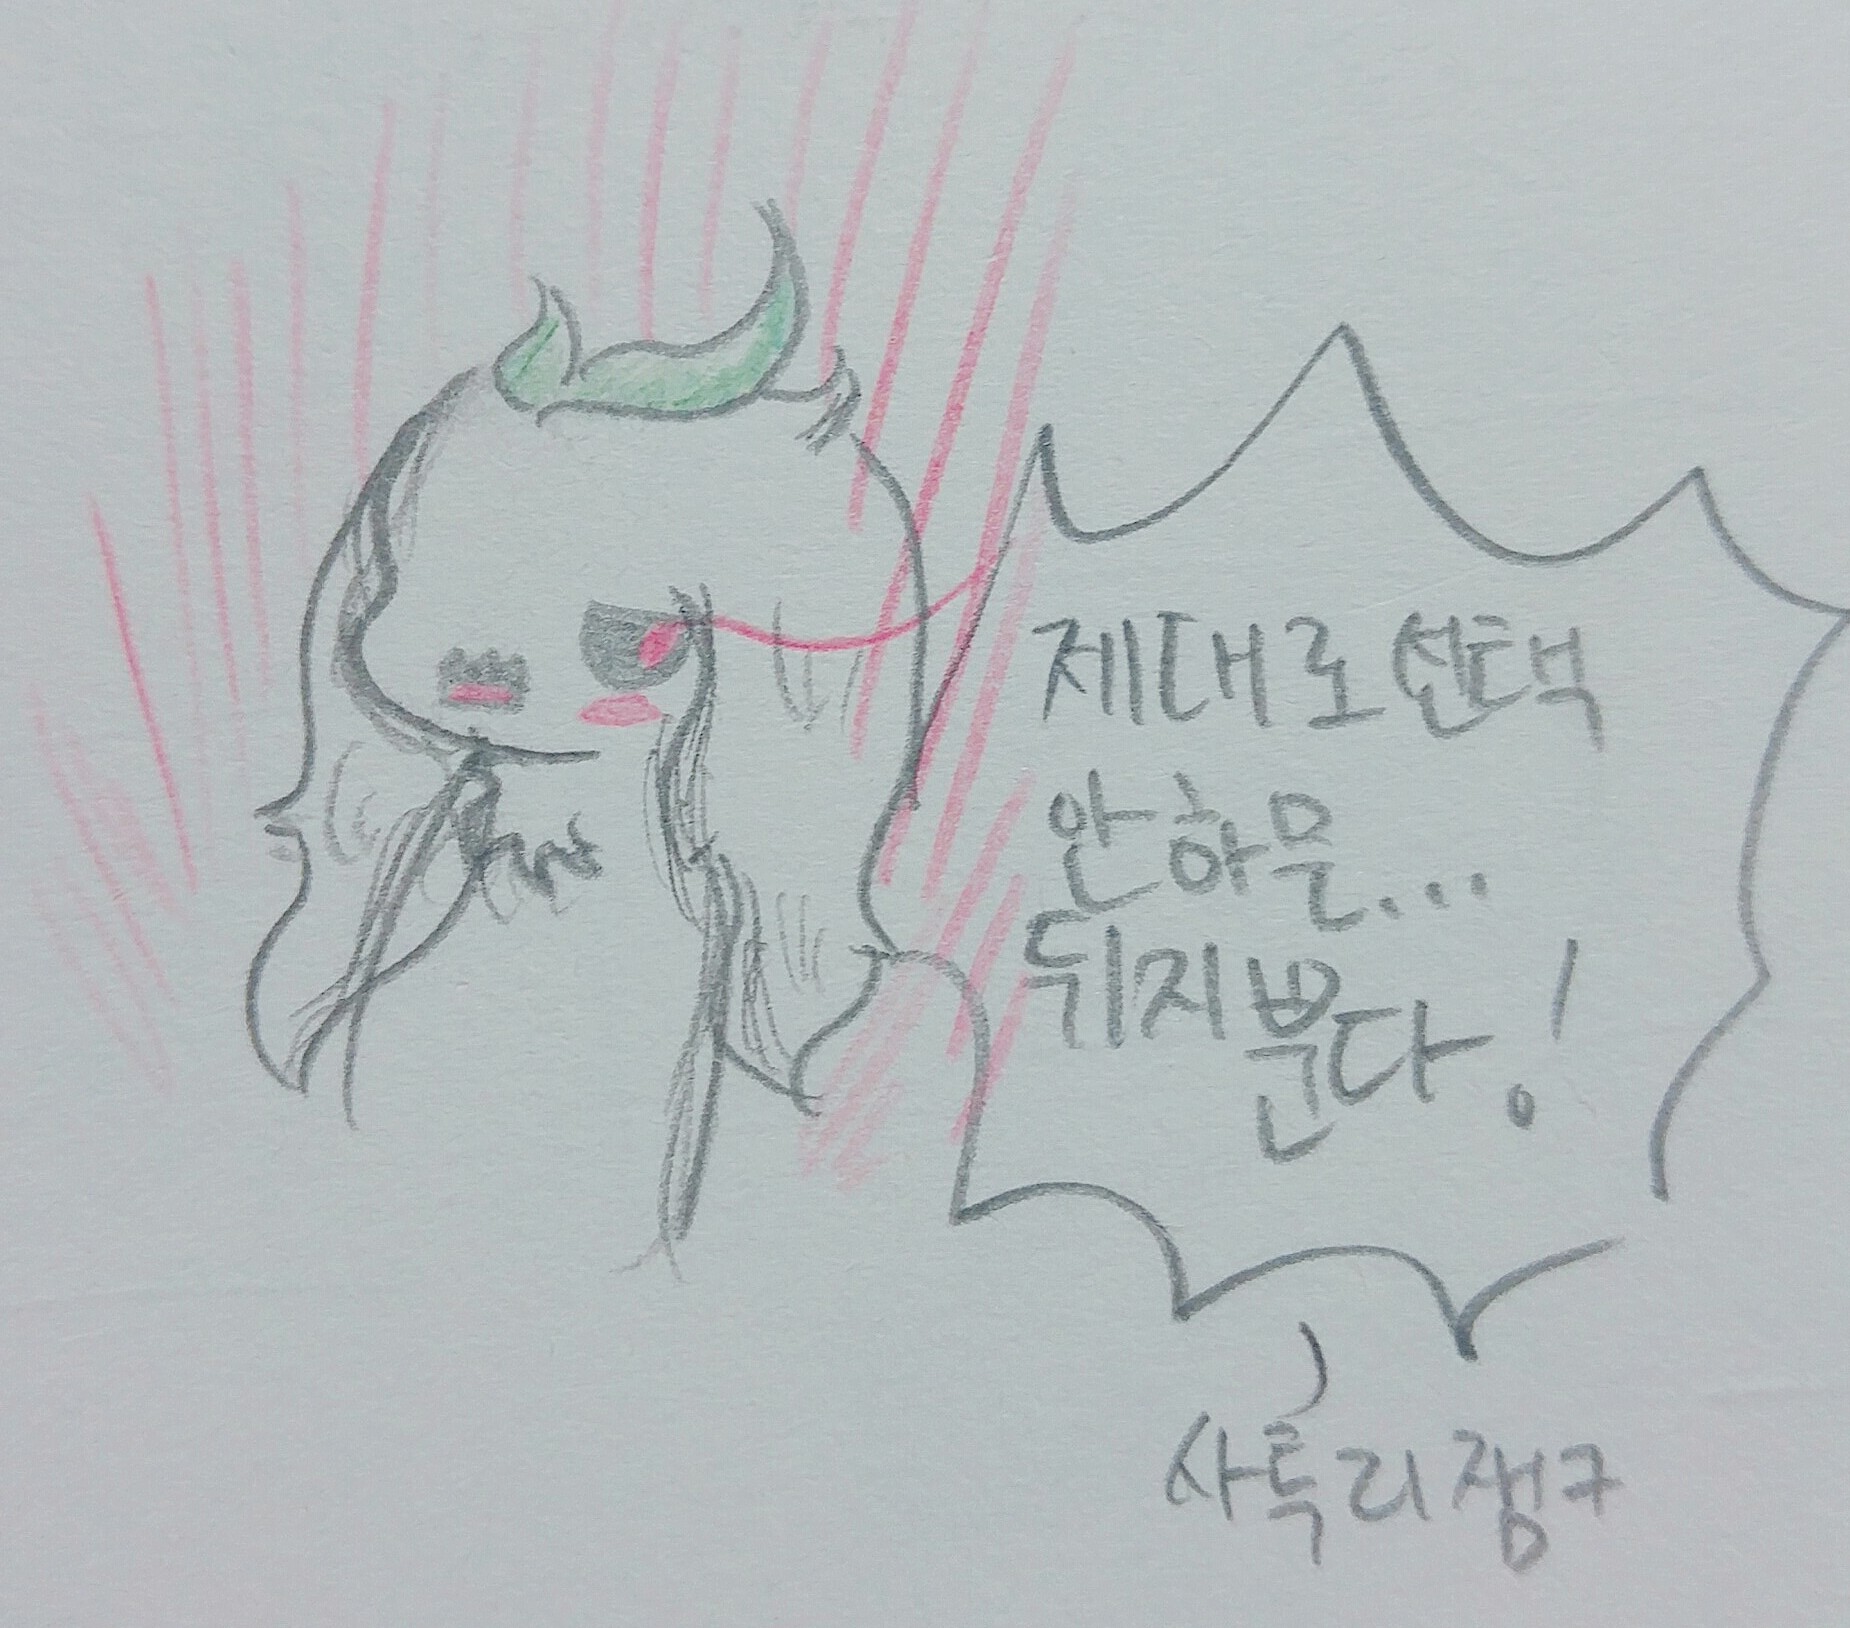 제대로 선택
안하믄...
뒤지븐다!
사투리 쟁구